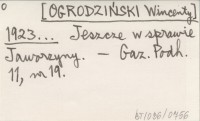 [OGRODZIŃSKI Wincenty]
1923... Jeszcze w sprawie
Jaworzyny. – Gaz. Podh.
11, nr 19.